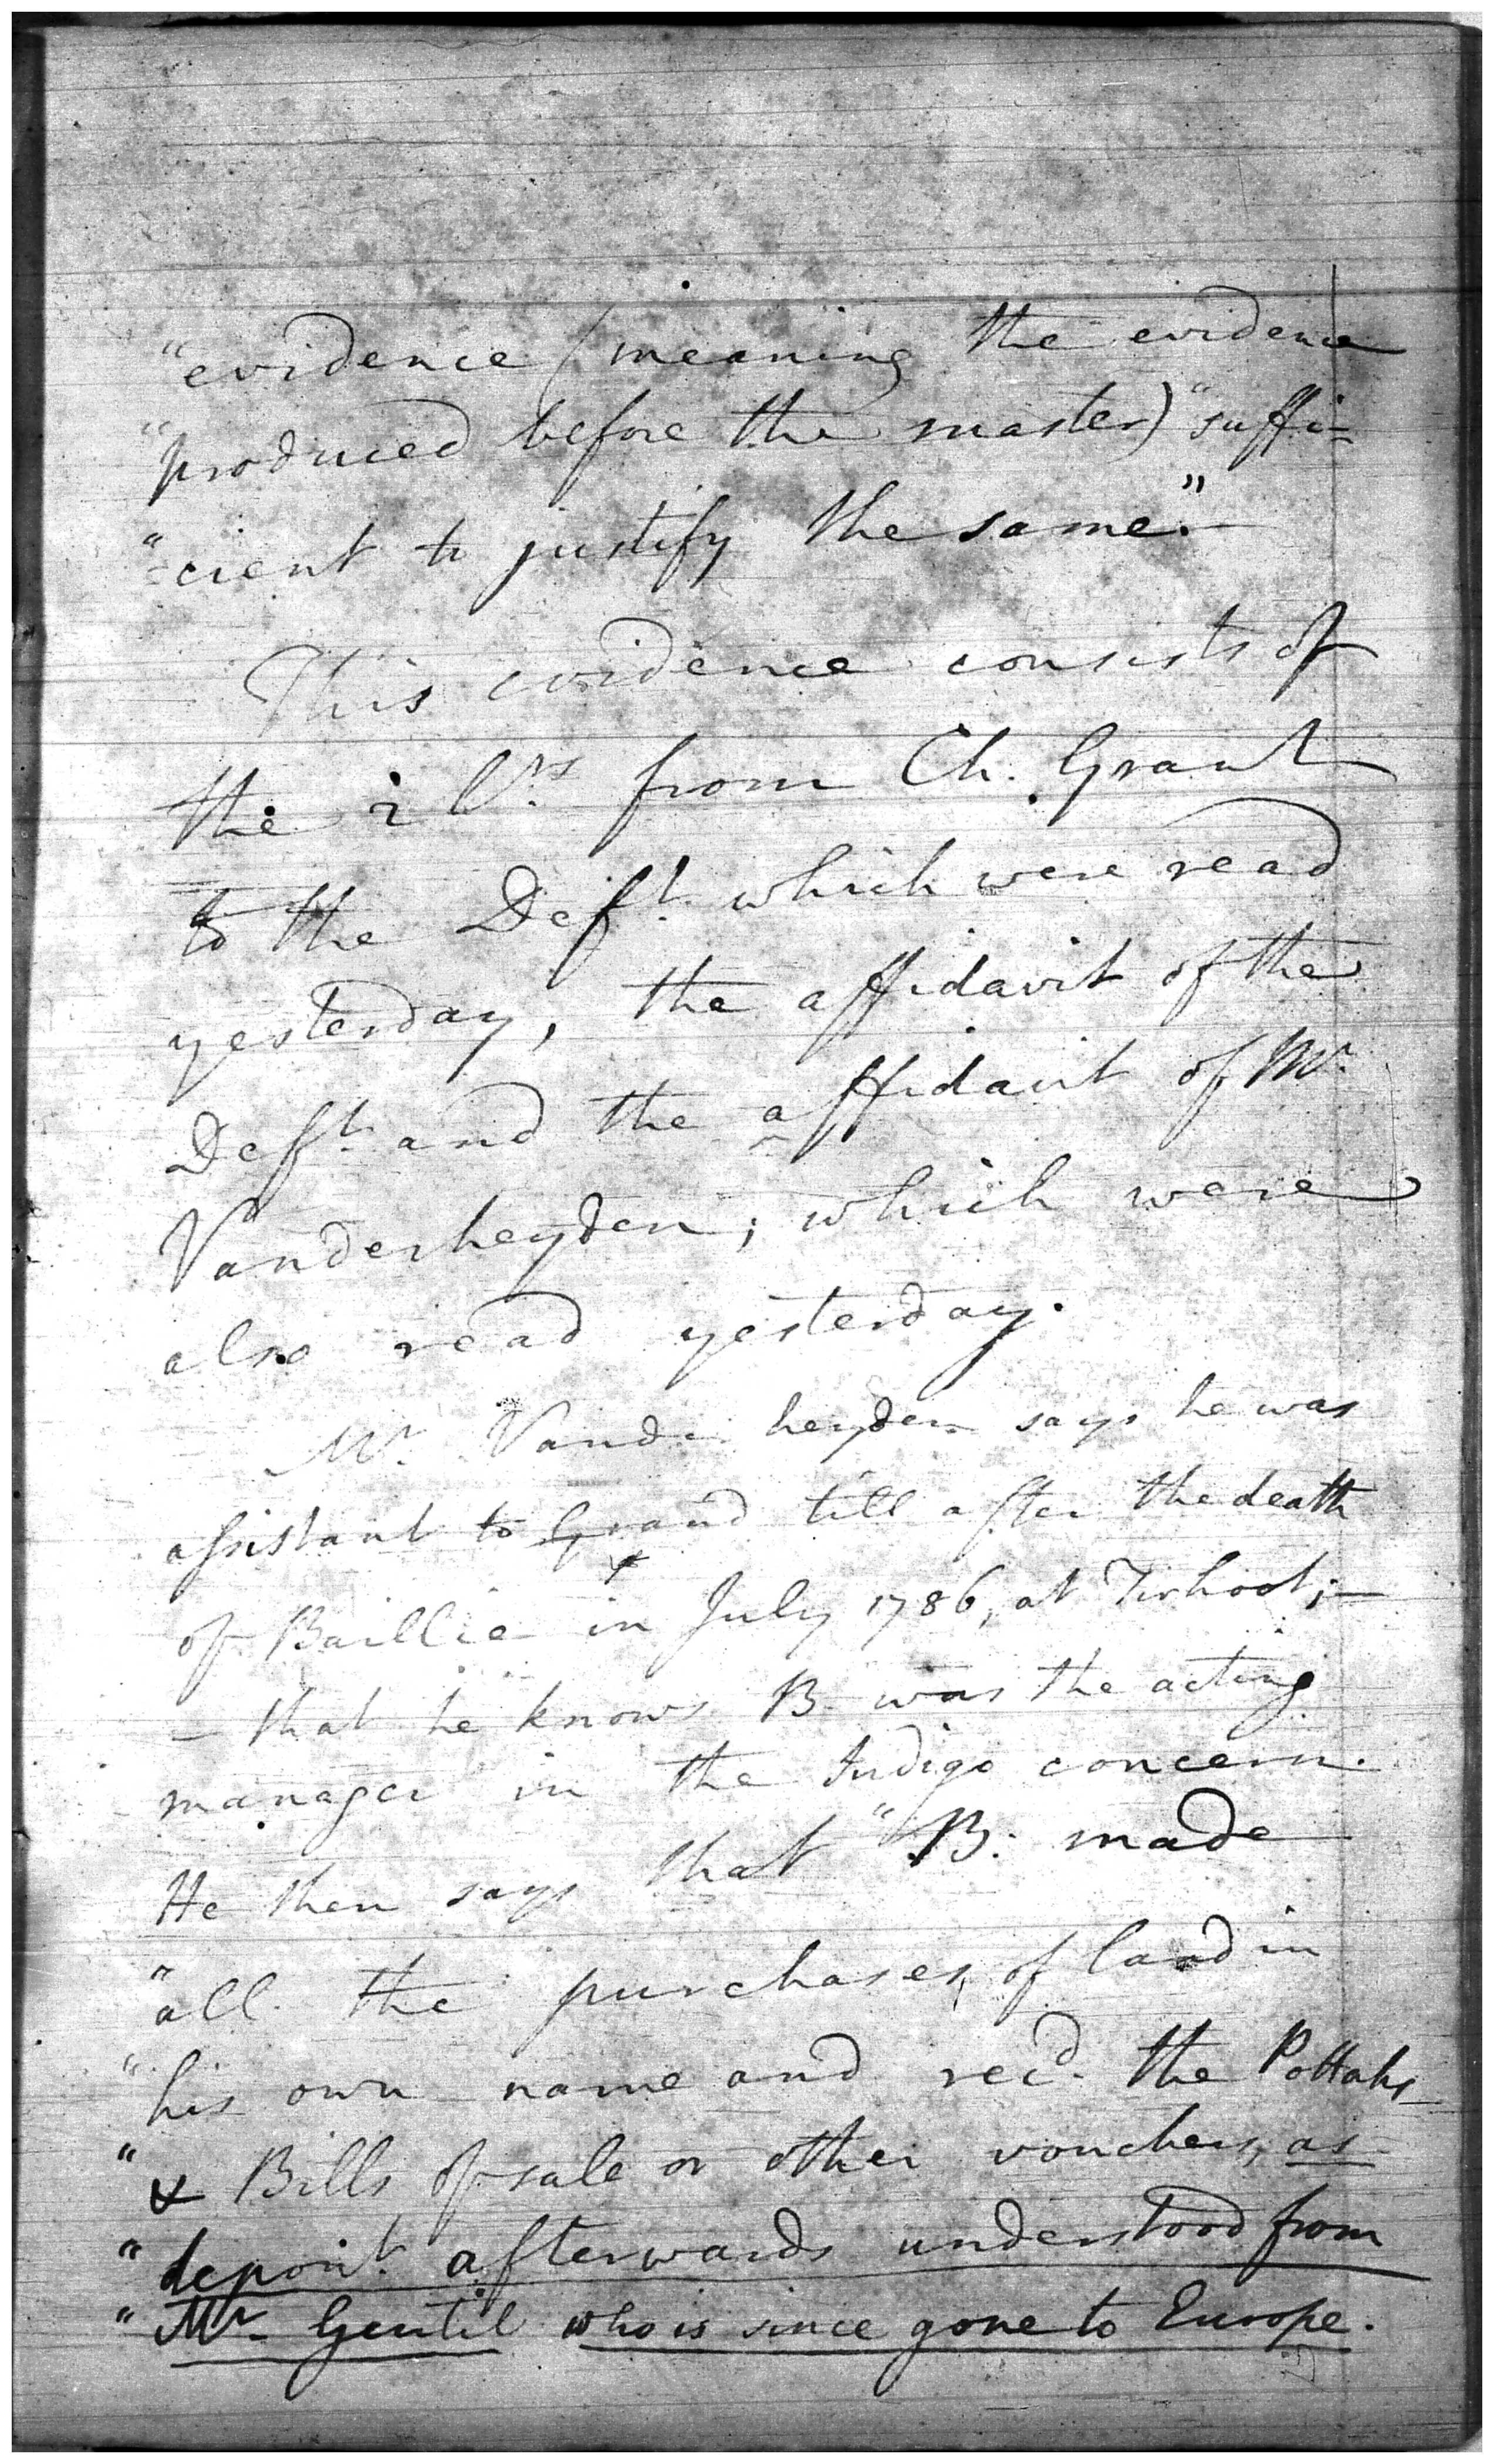 "evidence (meaning the evidence
"produced before the master) "suffi=
"=cient to justify the same."—
This evidence consists of
the 2 lrs from Ch. Grant
to the Deft. which were read
yesterday, the affidavit of the
Deft. and the affidavit of Mr.
Vanderheyden; which were
also read yesterday.
Mr. Vanderheyden says he was
assistant to Grand till after the death
of Baillie in July 1786, at Tirhoot;—
— that he knows B. was the acting
manager in the Indigo concern.
He then says that "B. made
"all the purchases of land in
"his own name and recd. the Pottahs
"& Bills of sale or other vouchers, as
"depont. afterwards understood from
"Mr. Gentil who is since gone to Europe.